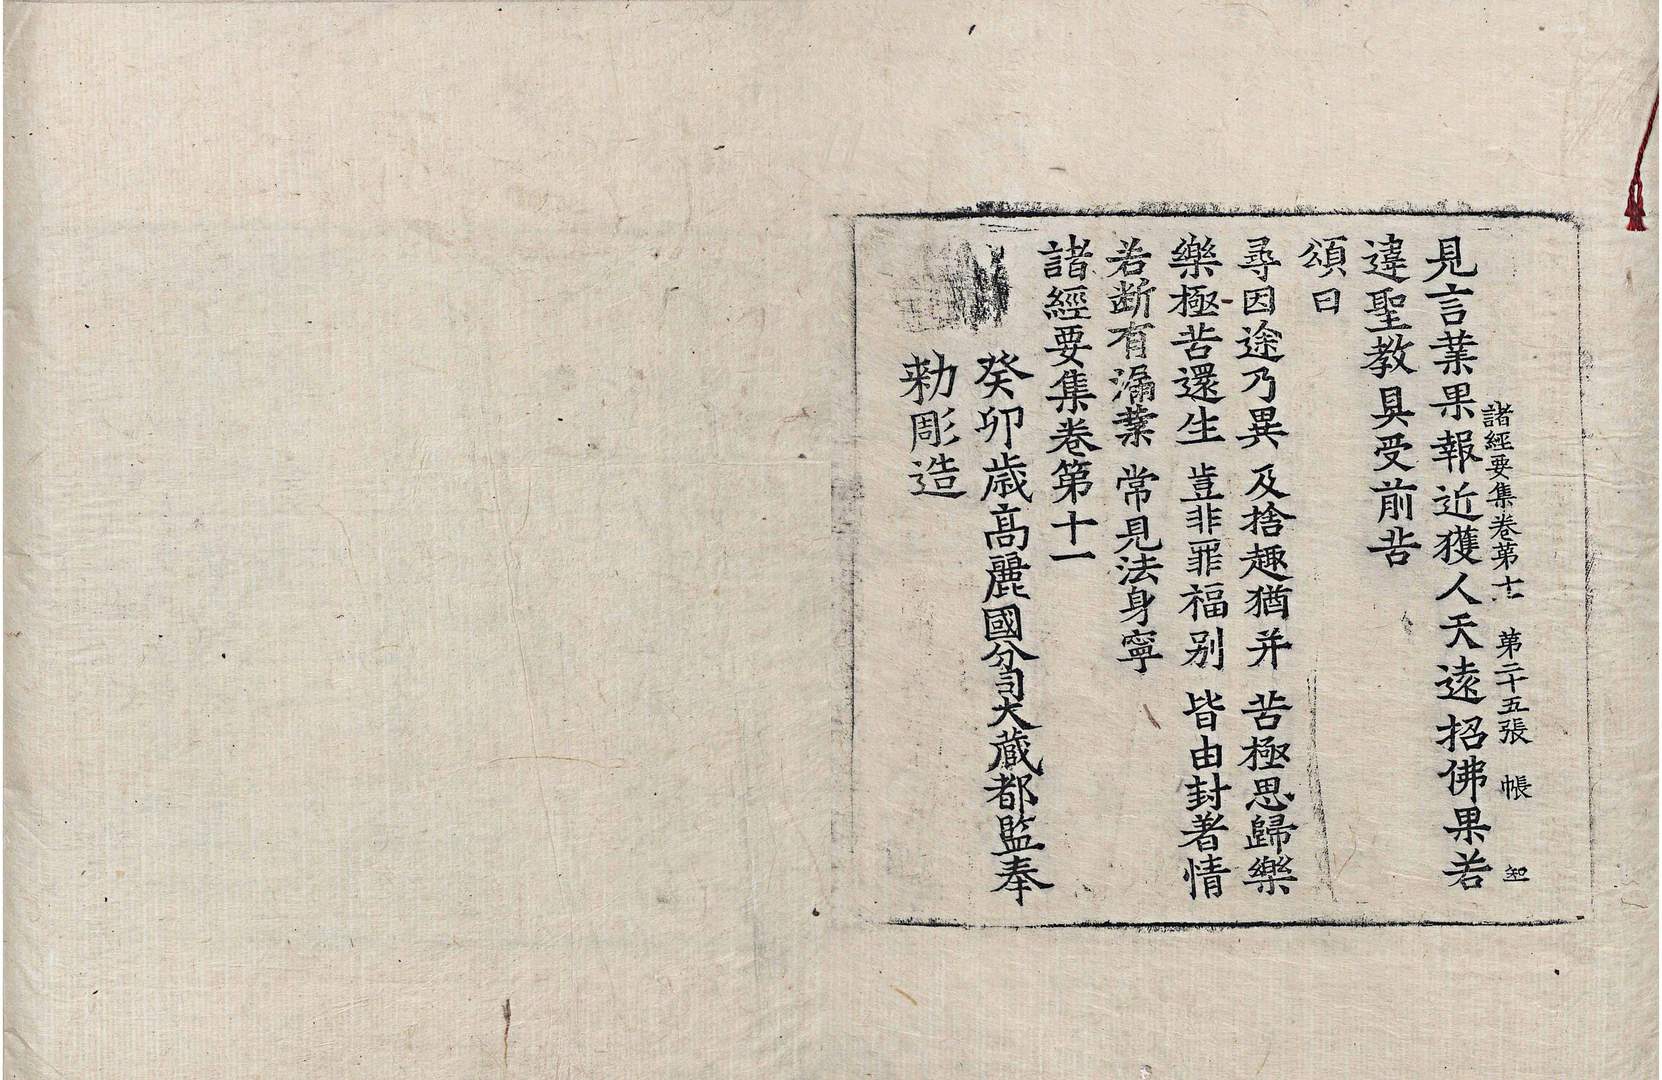 諸經要集卷第十一 第二十五張 帳 知
見言業果報近獲人天遠招佛果若
違聖教具受前苦
頌曰
尋因途乃異 及捨趣猶并 苦極思歸樂
樂極苦還生 豈非罪福別 皆由封著情
若断有漏業 常見法身寧
諸經要集卷第十一
癸卯歳高麗國分司大藏都監奉
勅彫造